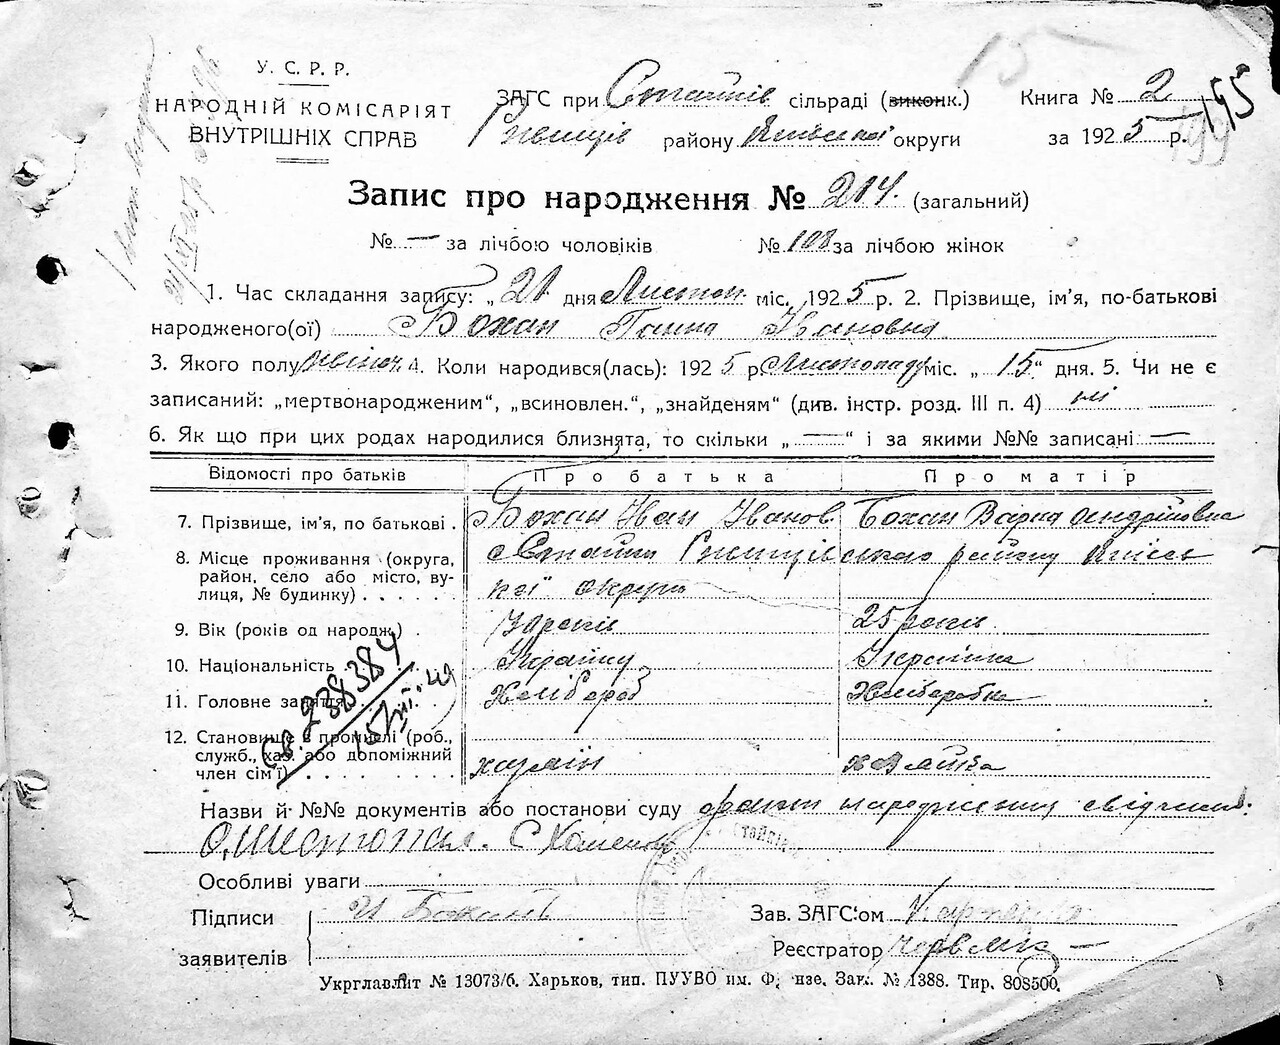 15
У. С. Р. Р.
НАРОДНІЙ КОМІСАРІЯТ
ВНУТРІШНІХ СПРАВ
ЗАГС при Стайків сільраді (виконк.)
Ржищів району Київської округи
Книга № 2
за 1925 р.
195
199
Запис про народження № 204. (загальний)
№ — за лічбою чоловіків № 108 за лічбою жінок
1. Час складання запису: „ 20 дня Листоп міс. 1925 р. 2. Прізвище, ім'я, по-батькові
народженого(ої) Бохан Ганна Івановна
3. Якого полу жіноч. 4. Коли народився(лась): 1925 р. Листопаду міс. „ 15 “ дня. 5. Чи не є
записаний: „мертвонародженим“, „всиновлен.“, „знайденям“ (див. інстр. розд. III п. 4) ні
6. Як що при цих родах народилися близнята, то скільки „ — “ і за якими №№ записані —
Відомості про батьків Про батька Про матір
7. Прізвище, ім'я, по батькові . Бохан Иван Іванов Бохан Варка Андрійовна
8. Місце проживання (округа, с Стайки Ржищівського району Київсь
район, село або місто, ву- кої округи
лиця, № будинку) . . . . .
9. Вік (років од народж.) . 25 роки
10. Національність Україінка
11. Головне заняття Хлібороб Хлібаробка
12. Становище в промислі (роб.,
служб., хаз. або допоміжний
член сім'ї) . . . . . . . хазяїн
Св. 238384
15/VII. 49
Назви й №№ документів або постанови суду народження
Особливі уваги
Підписи И Бохан
заявителів
Зав. ЗАГС'ом
Реєстратор
Укрглавліт № 13073/б. Харьков, тип. ПУУВО им. Фрунзе. Зак. № 1388. Тир. 808500.